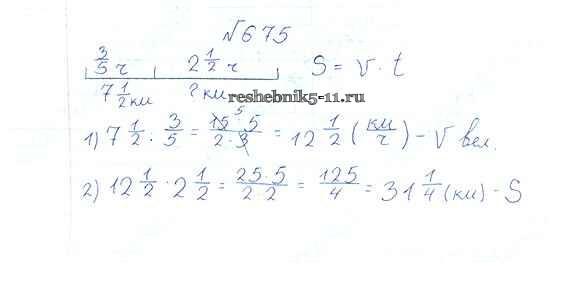 №675
3/5 ч 2 1/2 ч S = v · t
7 1/2 км ? км
reshebnik5-11.ru
1) 7 1/2 : 3/5 = 15 · 5 / 2 · 3 = 12 1/2 (км/ч) - V вел.
2) 12 1/2 · 2 1/2 = 25 · 5 / 2 · 2 = 125/4 = 31 1/4 (км) - S